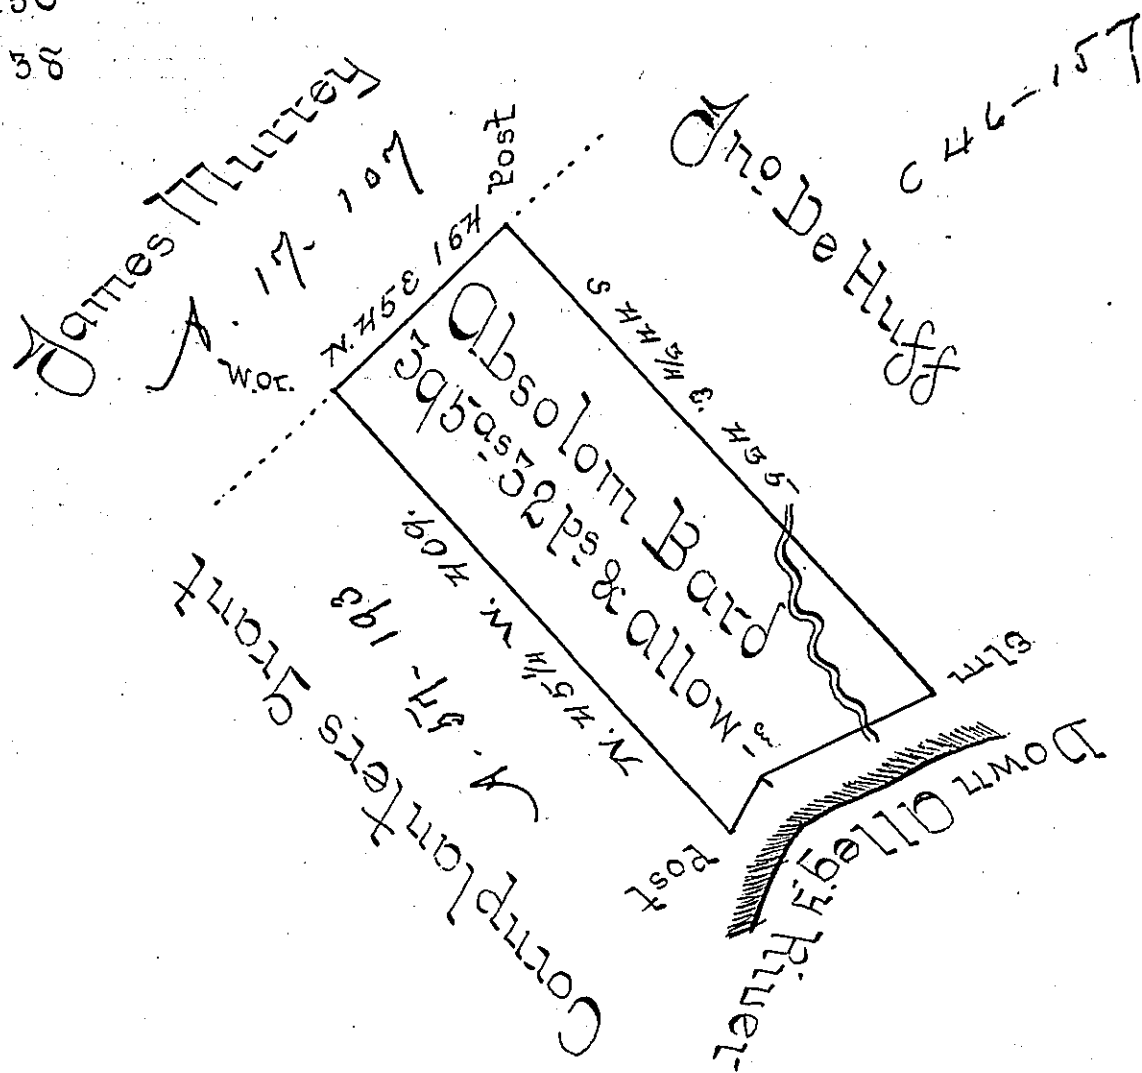 38
James Murrey
A. 17-107
W.or.
N.45E 164
Post
Jno. De Huff
C 46-157
S 44 3/4 E. 435
Absolom Bard
395 as 32 ps & Allow-
N. 45 1/4 W. 409.
A. 57-193
Cornplanters Grant
Elm
Post
Down Alleg.y River